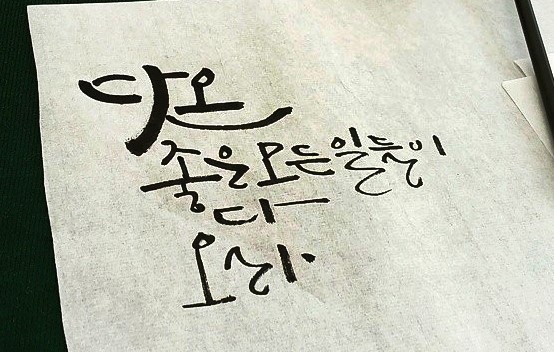 다온
좋은 모든 일들이
다
오라